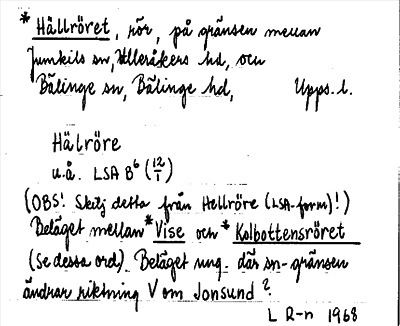 *Hällröret, rör, på gränsen mellan
Jumkils sn, Ulleråkers hd, och
Bälinge sn, Bälinge hd, Upps. l.
Hälröre
u.å. LSA B⁶ (12/1)
(OBS! Skilj detta från Hellröre (LSA-form)!)
Beläget mellan *Vise och *Kolbottensröret
(se dessa ord). Beläget ung. där sn-gränsen
ändrar riktning V om Jonsund?
L R-n 1968